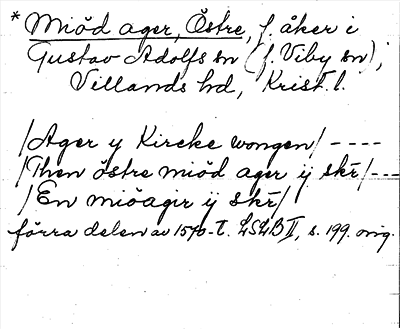 * Miöd ager, Östre, f. åker i
Gustav Adolfs sn (f. Viby sn),
Villands hd, Krist. l.
/Ager y Kircke wongen/ ----
/Then östre miöd ager ÿ skr̄/---
/En miöagir ÿ skr̄/
förra delen av 1570-t. LSLB II, s. 199. orig.